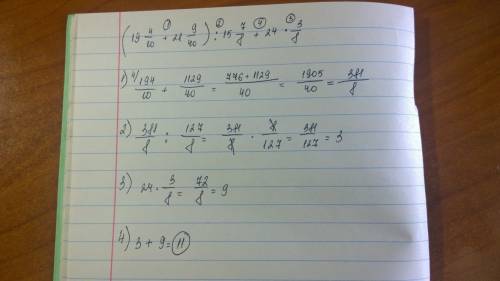 ① ② ④ ③
(19 4/10 + 28 9/40) : 15 7/8 + 24 · 3/8
1) 4/ 194/10 + 1129/40 = 776+1129/40 = 1905/40 = 381/8
2) 381/8 : 127/8 = 381/8 · 8/127 = 381/127 = 3
3) 24 · 3/8 = 72/8 = 9
4) 3 + 9 = 11